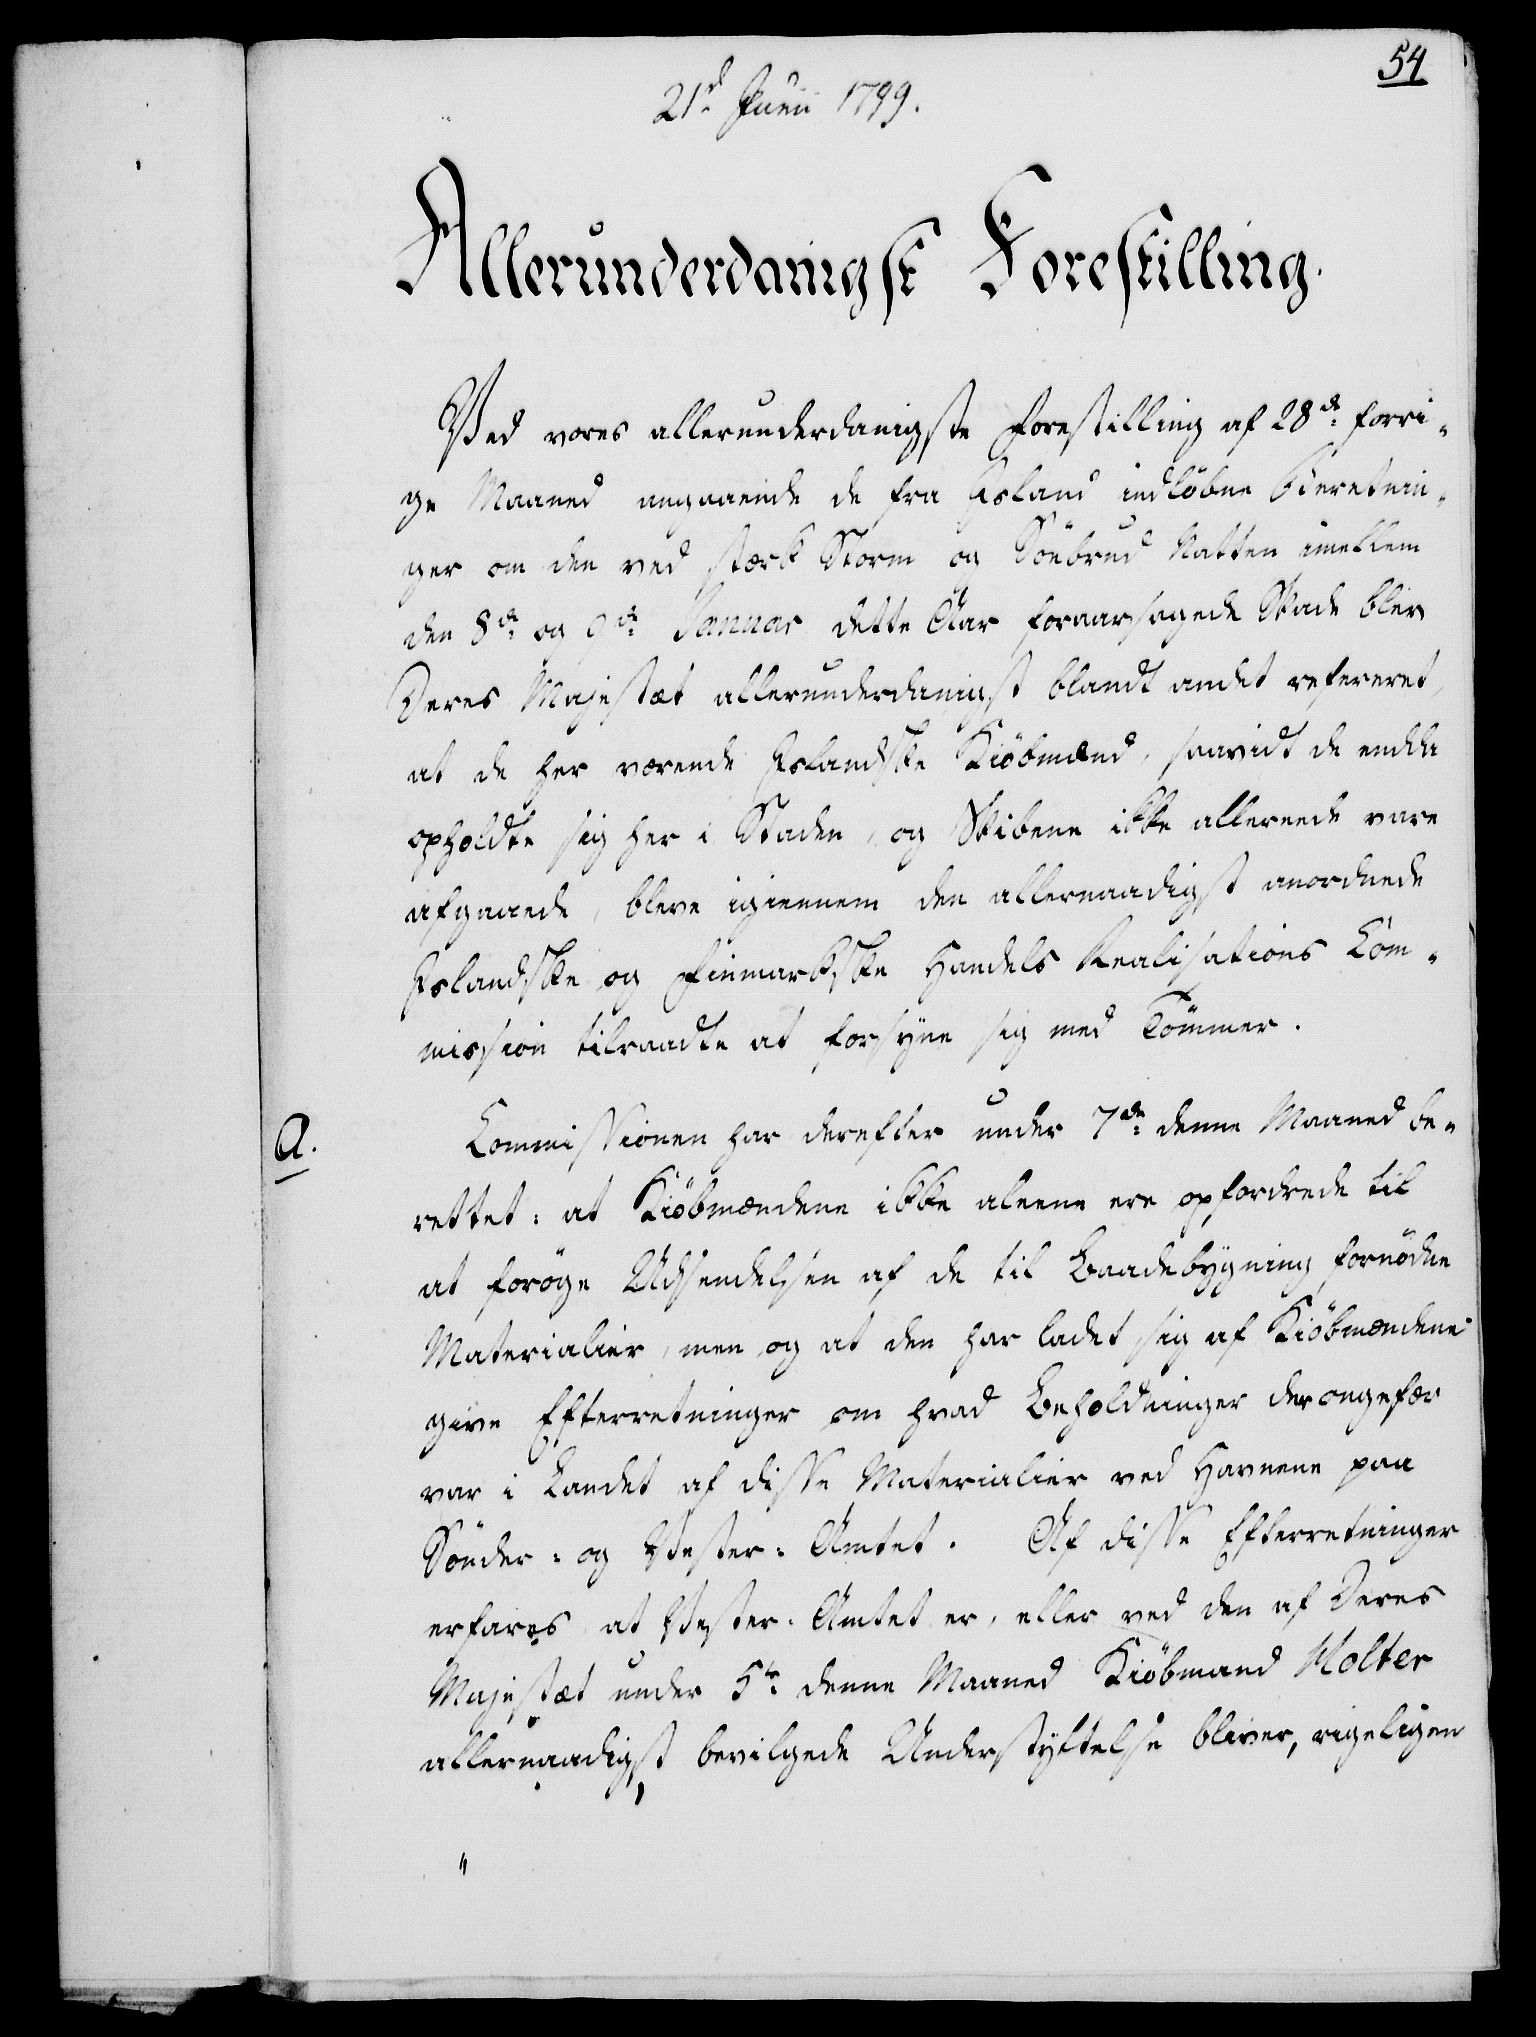 54
21d Junii 1799.
Allerunderdanigst Forestilling.
Ved vores allerunderdanigste Forestilling af 28de forri-
ge Maaned angaaende de fra Island indløbne Efterretnin-
ger om den ved stærk Storm og Söebrud Natten imellem
den 8de og 9de Januar dette Aar foraarsagede Skade blev
Deres Majestæt allerunderdanigst blandt andet refereret,
at de her værende Islandske Kiöbmænd, saavidt de endda
opholdte sig her i Staden, og Skibene ikke allereede vare
afgaaede, bleve igiennem den allernaadigst anordnede
Islandske og Finmarkske Handels Realisations Com-
mission tilraadte at forsyne sig med Tömmer.
A.
Commissionen har derefter under 7de denne Maaned be-
rettet: at Kiöbmændene ikke aleene ere opfordrede til
at foröge Udsendelsen af de til Baadebygning fornödne
Materialier, men og at den har ladet sig af Kiöbmændene
give Efterretninger om hvad Beholdninger der ongefær
var i Landet af disse Materialier ved Havnene paa
Sönder- og Vester-Amtet. Af disse Efterretninger
erfares at Vester-Amtet er, eller ved den af Deres
Majestæt under 5te denne Maaned Kiöbmand Holter
allernaadigst bevilgede Understyttelse bliver, rigeligen